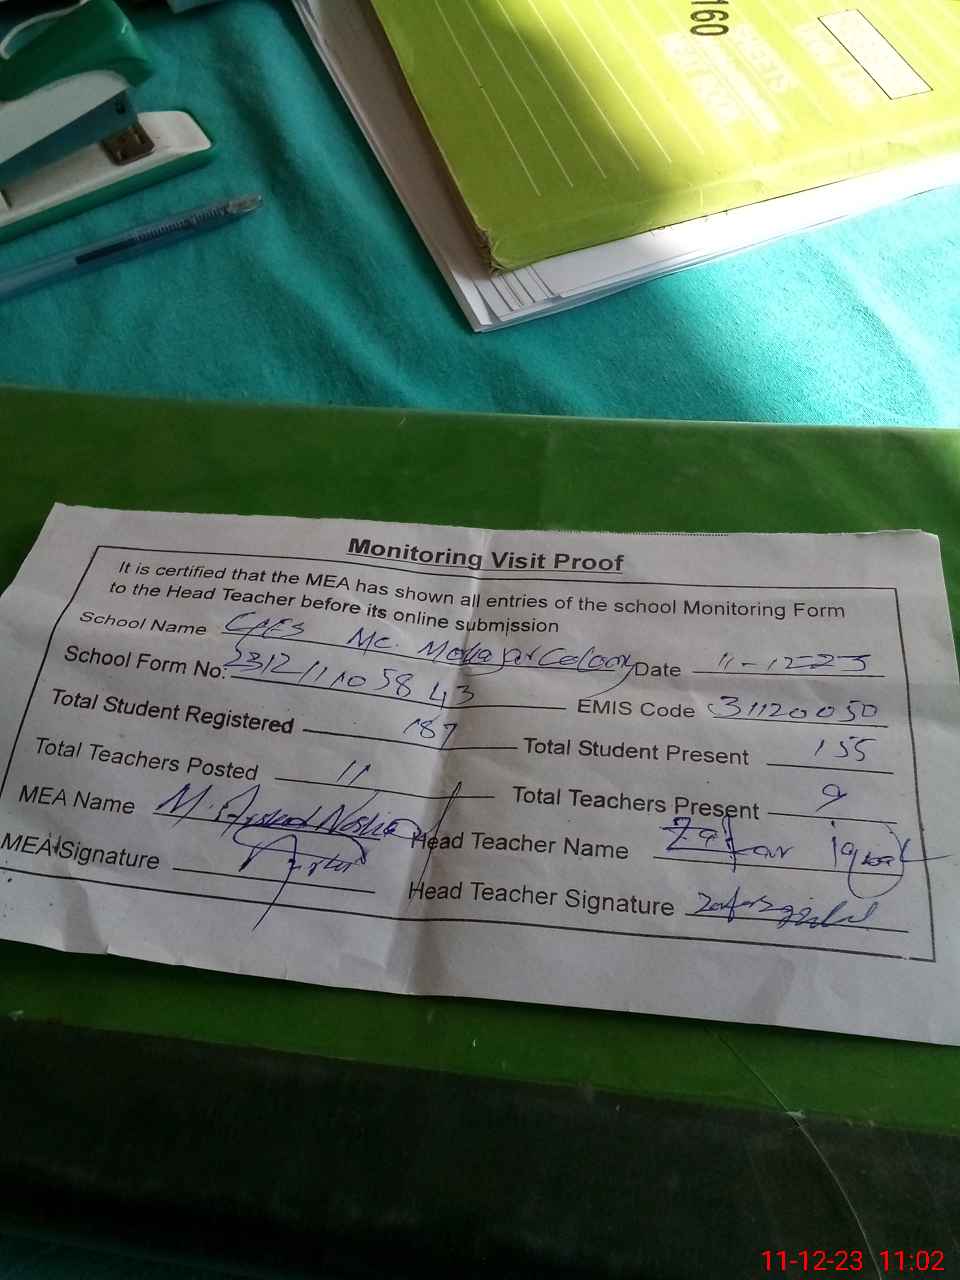 160
Monitoring Visit Proof
It is certified that the MEA has shown all entries of the school Monitoring Form
to the Head Teacher before its online submission
School Name GPES MC. Mohajar Colony Date 11-12-23
School Form No: 231211105843 EMIS Code 31120050
Total Student Registered 187 Total Student Present 155
Total Teachers Posted 11 Total Teachers Present 9
MEA Name M. Head Teacher Name Zafar Iqbal
MEA Signature Head Teacher Signature
11-12-23 11:02